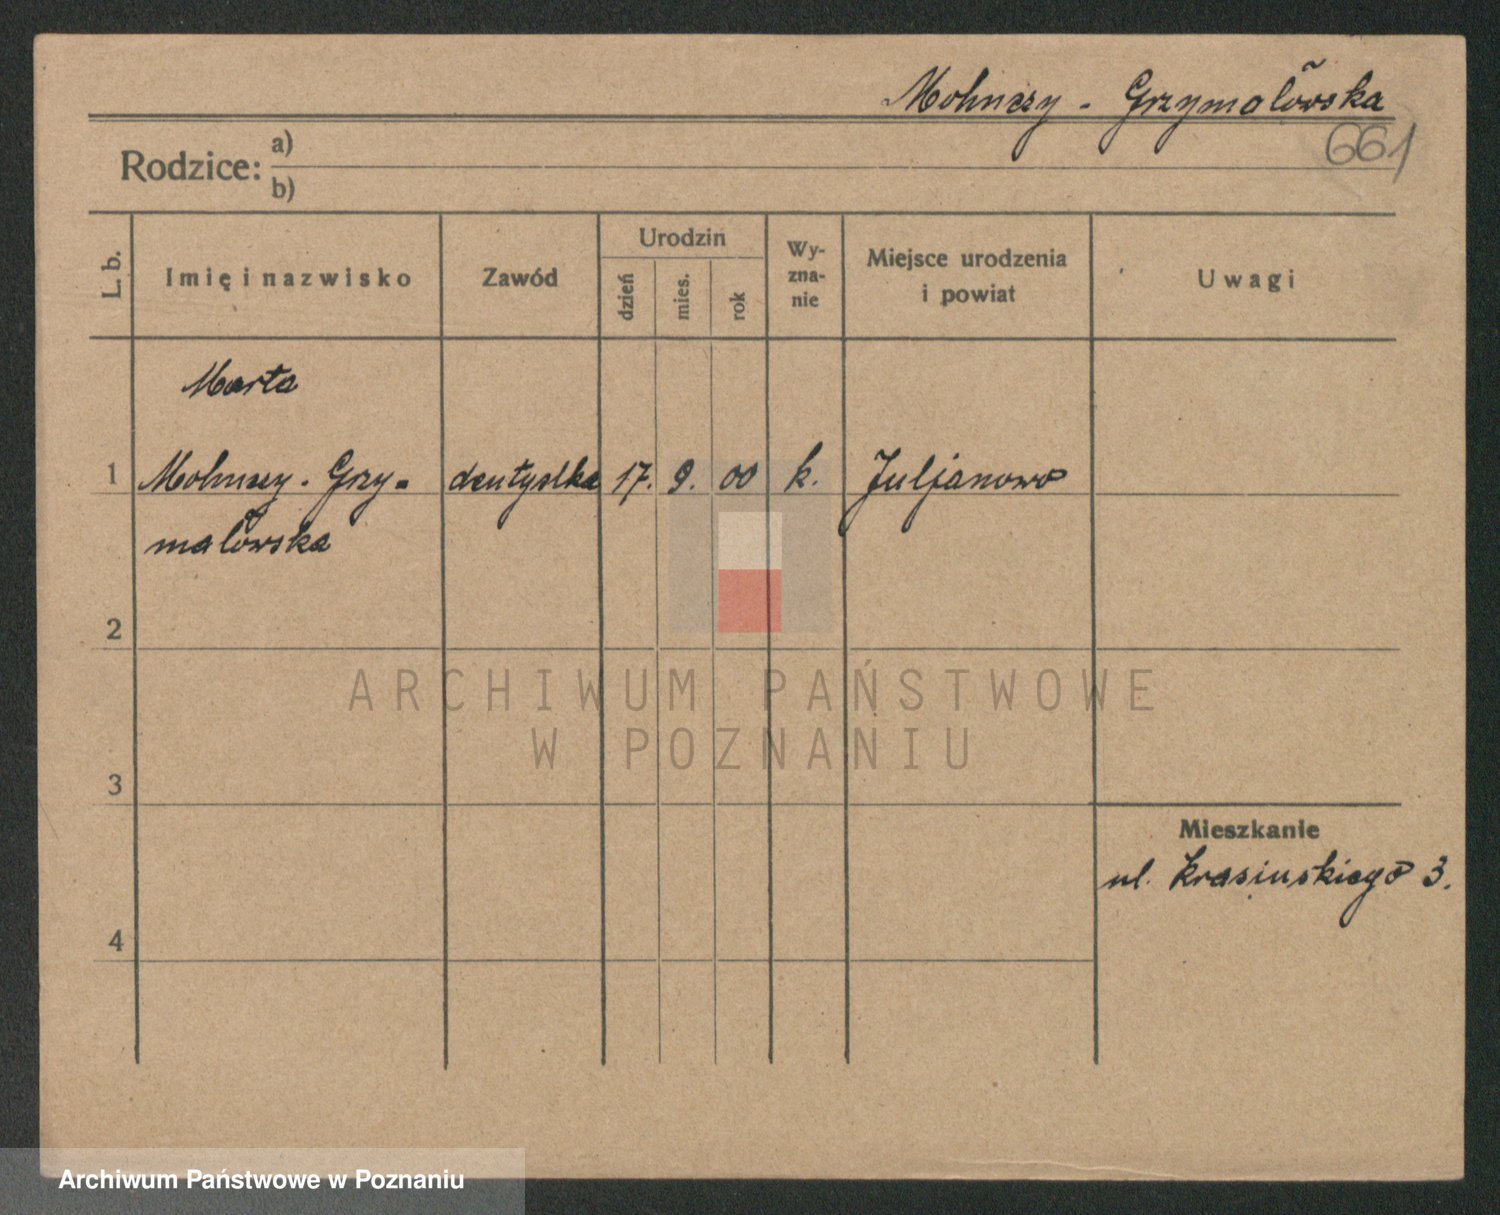 Mohuczy - Grzymałowska
661
Rodzice: a)
b)
L. b.
Imię i nazwisko
Zawód
Urodzin
dzień
mies.
rok
Wy-
zna-
nie
Miejsce urodzenia
i powiat
Uwagi
Marta
1 Mohuczy - Grzy- dentystka 17. 9. 00 k. Juljanowo
małowska
2
3
4
Mieszkanie
ul. Krasińskiego 3.
ARCHIWUM PAŃSTWOWE
W POZNANIU
Archiwum Państwowe w Poznaniu